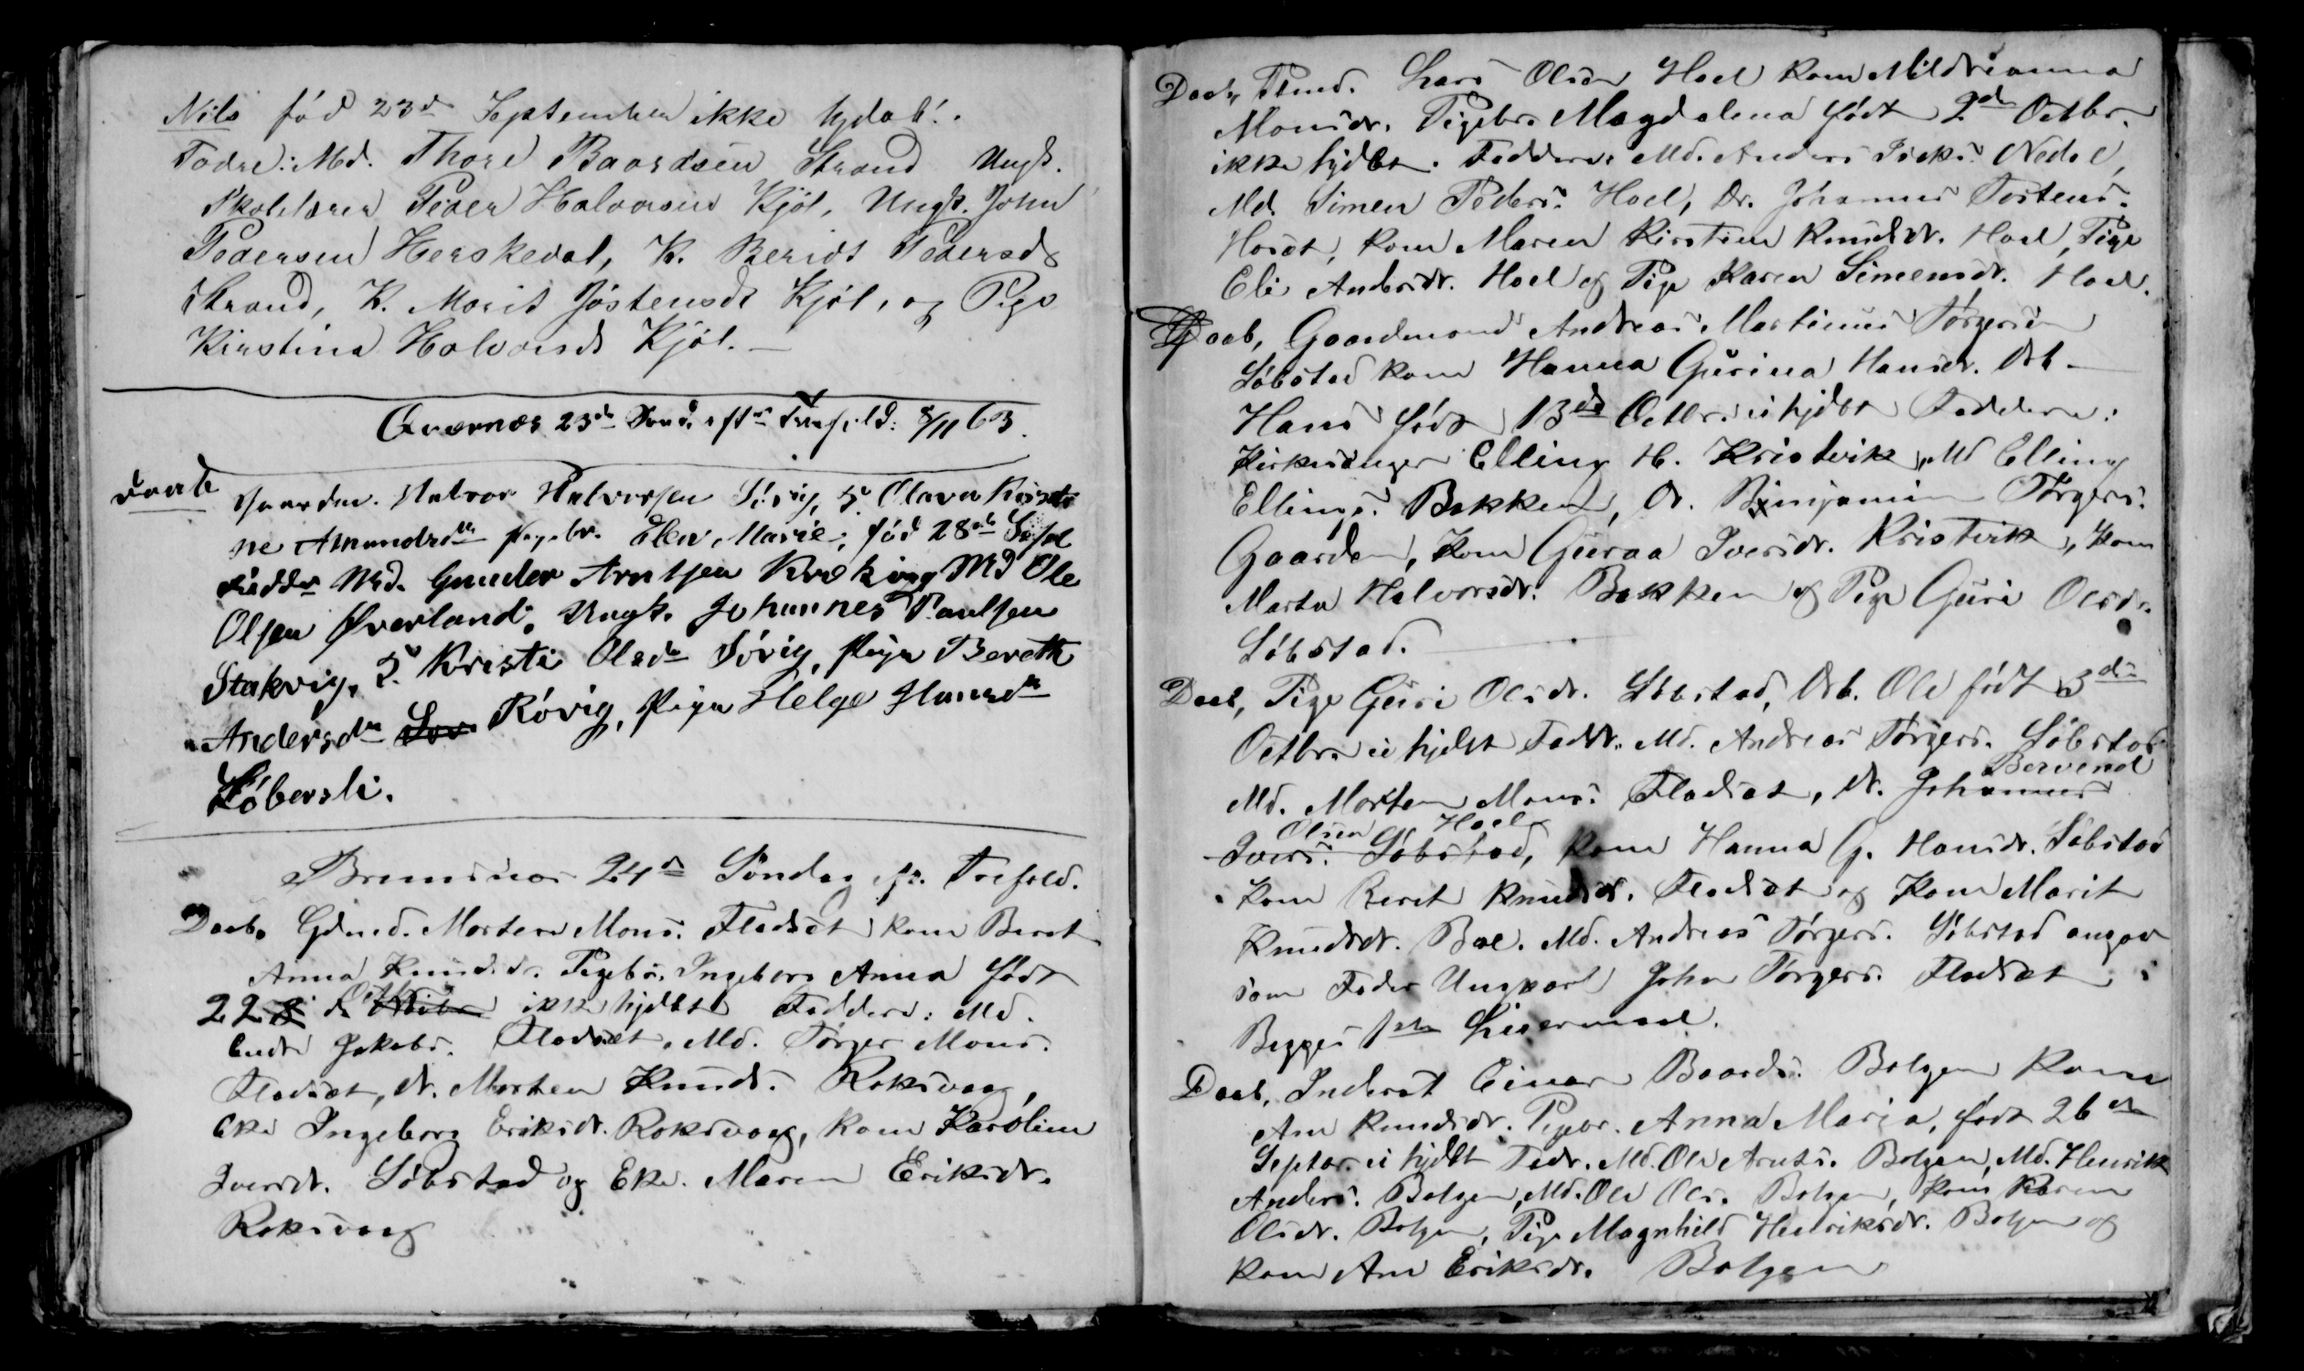 Nils fød 23d September ikke hjdøb!.
Fadre: Md. Thore Baardsen Strand Ungk.
Skolelærer Peder Halvorsen Kjøl, Ungk. John
Pedersen Herskedal, K. Beridt Pedersd
Strand, K. Marit Jøstensdt Kjøl, og Pige
Kirstina Halvorsdt Kjøl.
Qværnæs 23de Sønd. eftr Trefold: 8/11 63.
Daab Gaardm. Halvor Halvorsen Sörvig, H. Olava Kristi
ne Amundsdtr Pigebr. Elen Marie, fød 28de Sept
Fadder Md. Gunder Arntsen Kvæking Md Ole
Olsen Øverland, Ungk. Johannes Paulsen
Stakvig, H. Kristi Olsdr Sörig, Pige Bereth
Andersdtr Sør Rövig, Pige Helge Hansdtr
Köbersli.
Bremsnes 24de Söndag efr. Trefold.
Daab, Gdmd. Morten Mons. Fladset kone Beret
Anna Knudsdr. Pigebr. Ingeborg Anna födt
22 8 de Oktbr ikke hjdbt Faddere: Md.
Endre Jakobs. Fladset, Md. Törger Mons.
Fladset, Dr. Morten Knuds. Roksvaag,
Eke Ingeborg Eriksdr. Roksvaag, Kone Karoline
Iversdr. Löbstad og Eke. Maren Eriksdr.
Roksvaag
Daab, Plmd. Lars Olsen Hoel kone Mildrianna
Monsdr. Pigebr. Magdalena födt 2de Octbr.
ikke hjdbt. Faddere: Md. Anders Isaks. Nedal,
Md. Simen Peders. Hoel, Dr. Johannes Tostens.
Hoset, kone Maren Kirstine Knudsdr. Hoel, Pige
Eli Andersdr. Hoel og Pige Karen Simensdr. Hoel.
Daab, Gaardmand Andreas Martinus Törgersen
Löbstad kone Hanna Gurina Hansdr. Drb.
Hans födt 13de Octbr. ei hjdbt Faddere:
Kirkesanger Elling H. Kristvik, Md Elling
Ellings. Bakken, Dr. Binjamin Törgers.
Gaarden, kone Guraa Iversdr. Kristvik, kone
Marta Halvorsdr. Bakken og Pige Guri Olsdr.
Löbstad.
Daab, Pige Guri Olsdr. Löbstad, Drb. Ole födt 3die
Octbr. ei hjdbt Faddr. Md. Andreas Törgers. Löbstad
Bervend
Md. Morten Mons. Fladset, Dr. Johannes
Olsen Hoel
Ivers. Löbstad, kone Hanna G. Hansdr. Löbstad
kone Beret Knudsdr. Fladset og kone Marit
Knudsdr. Bæ. Md. Andreas Törgers. Löbstad angav
som Fader Ungkarl John Törgers. Fladset
Begges 1ste Leiermaal.
Daab, Inderst Einar Baards. Bolgen kone
Ane Knudsdr. Pigebr. Anna Maria, födt 26de
Septbr. ei hjdbt Fadr. Md. Ole Arnts. Bolgen, Md. Henrik
Anders. Bolgen, Md. Ole Ols. Bolgen, kone Karen
Olsdr. Bolgen, Pige Magnhild Henriksdr. Bolgen og
kone Ane Eriksdr. Bolgen